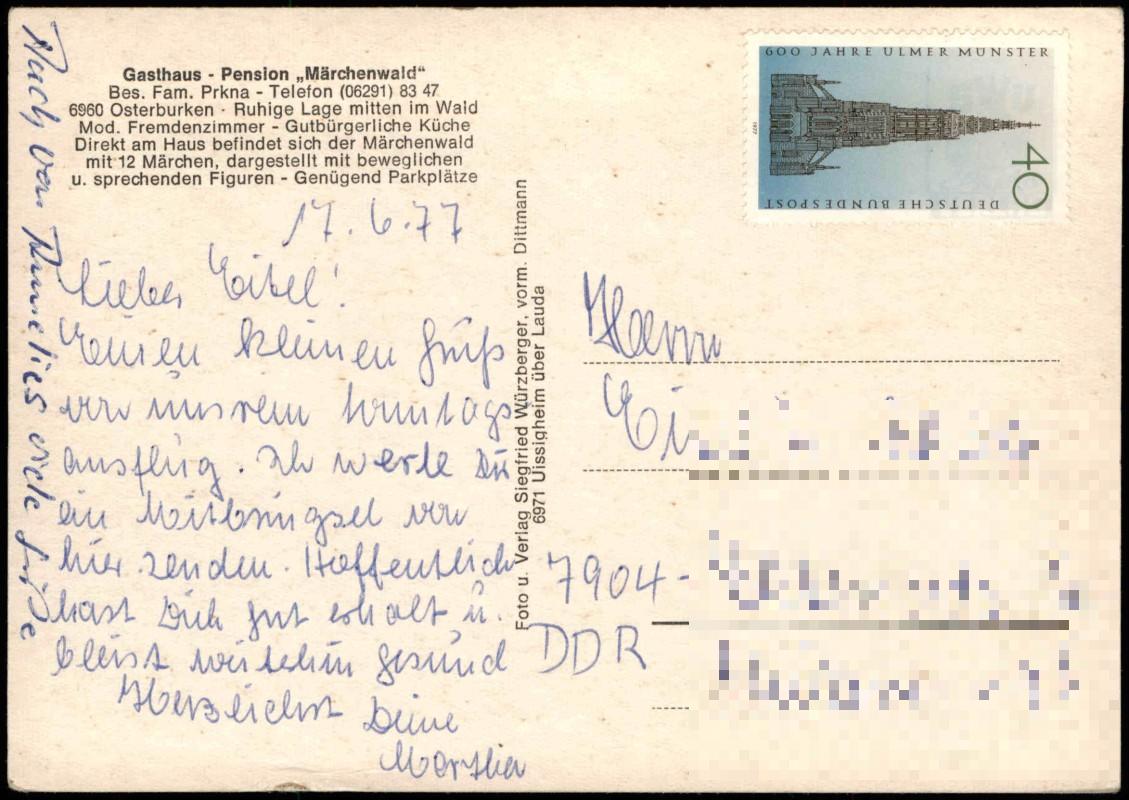 Gasthaus - Pension „Märchenwald“
Bes. Fam. Prkna - Telefon (06291) 83 47
6960 Osterburken · Ruhige Lage mitten im Wald
Mod. Fremdenzimmer - Gutbürgerliche Küche
Direkt am Haus befindet sich der Märchenwald
mit 12 Märchen, dargestellt mit beweglichen
u. sprechenden Figuren - Genügend Parkplätze
17.6.77
Lieber Eitel!
Einen kleinen Gruß
von unsrem Sonntags
ausflug. Ich werde Dir
ein Mitbringsel von
hier senden. Hoffentlich
hast Dich gut erholt u.
bleibst weiterhin gesund
Herzlichst Deine
Martha
Auch von Annelies viele Grüße
Foto u. Verlag Siegfried Würzberger, vorm. Dittmann
6971 Uissigheim über Lauda
600 JAHRE ULMER MÜNSTER
1977
40
DEUTSCHE BUNDESPOST
Herrn
7904-
DDR